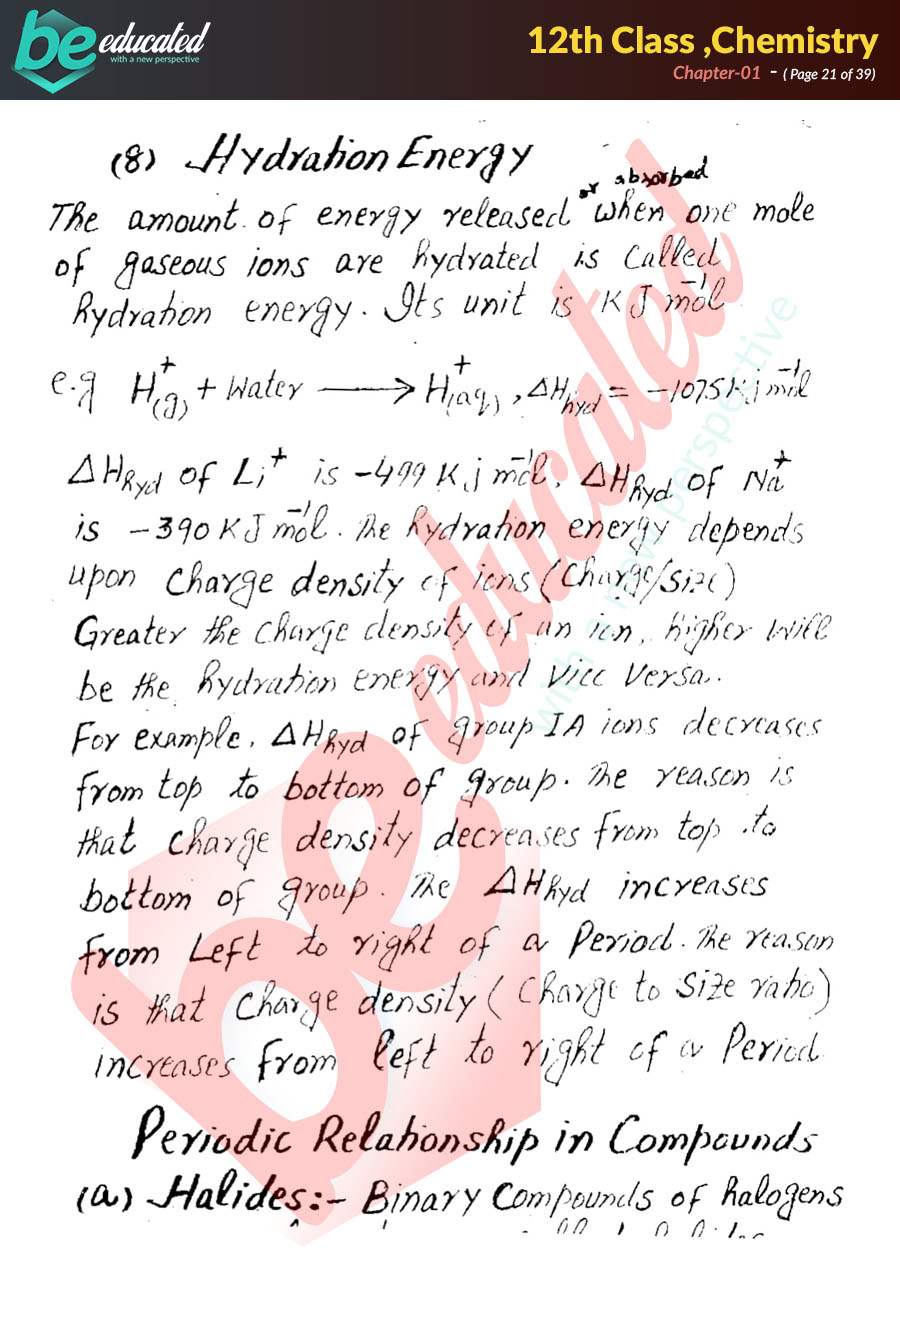 be educated
with a new perspective
12th Class ,Chemistry
Chapter-01 - ( Page 21 of 39)
(8) Hydration Energy
or absorbed
The amount of energy released when one mole
of gaseous ions are hydrated is called
hydration energy. Its unit is KJ mol⁻¹
e.g H⁺(g) + water ⟶ H⁺(aq), ΔHhyd = -1075 kj mol⁻¹
ΔHhyd of Li⁺ is -499 Kj mol⁻¹, ΔHhyd of Na⁺
is -390 KJ mol⁻¹. The hydration energy depends
upon charge density of ions (Charge/Size)
Greater the charge density of an ion, higher will
be the hydration energy and vice versa.
For example, ΔHhyd of group IA ions decreases
from top to bottom of group. The reason is
that charge density decreases from top to
bottom of group. The ΔHhyd increases
from Left to right of a Period. The reason
is that charge density (Charge to size ratio)
increases from left to right of a Period
Periodic Relationship in Compounds
(a) Halides:- Binary Compounds of halogens
be educated
with a new perspective